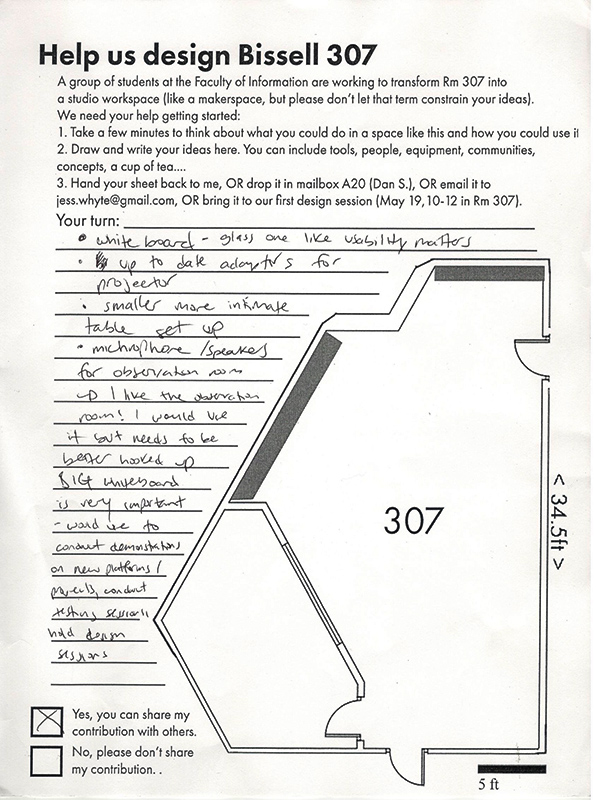 Help us design Bissell 307
A group of students at the Faculty of Information are working to transform Rm 307 into
a studio workspace (like a makerspace, but please don't let that term constrain your ideas).
We need your help getting started:
1. Take a few minutes to think about what you could do in a space like this and how you could use it
2. Draw and write your ideas here. You can include tools, people, equipment, communities,
concepts, a cup of tea....
3. Hand your sheet back to me, OR drop it in mailbox A20 (Dan S.), OR email it to
jess.whyte@gmail.com, OR bring it to our first design session (May 19, 10-12 in Rm 307).
Your turn:
• white board - glass one like usability matters
• up to date adaptors for
projector
• smaller more intimate
table set up
• microphone / speakers
for observation room
I like the observation
room! I would use
it but needs to be
better hooked up
BIG whiteboard
is very important
- would use to
conduct demonstrations
on new platforms /
projects, conduct
testing sessions
hold design
sessions
307
< 34.5ft >
Yes, you can share my
contribution with others.
No, please don't share
my contribution. .
5 ft